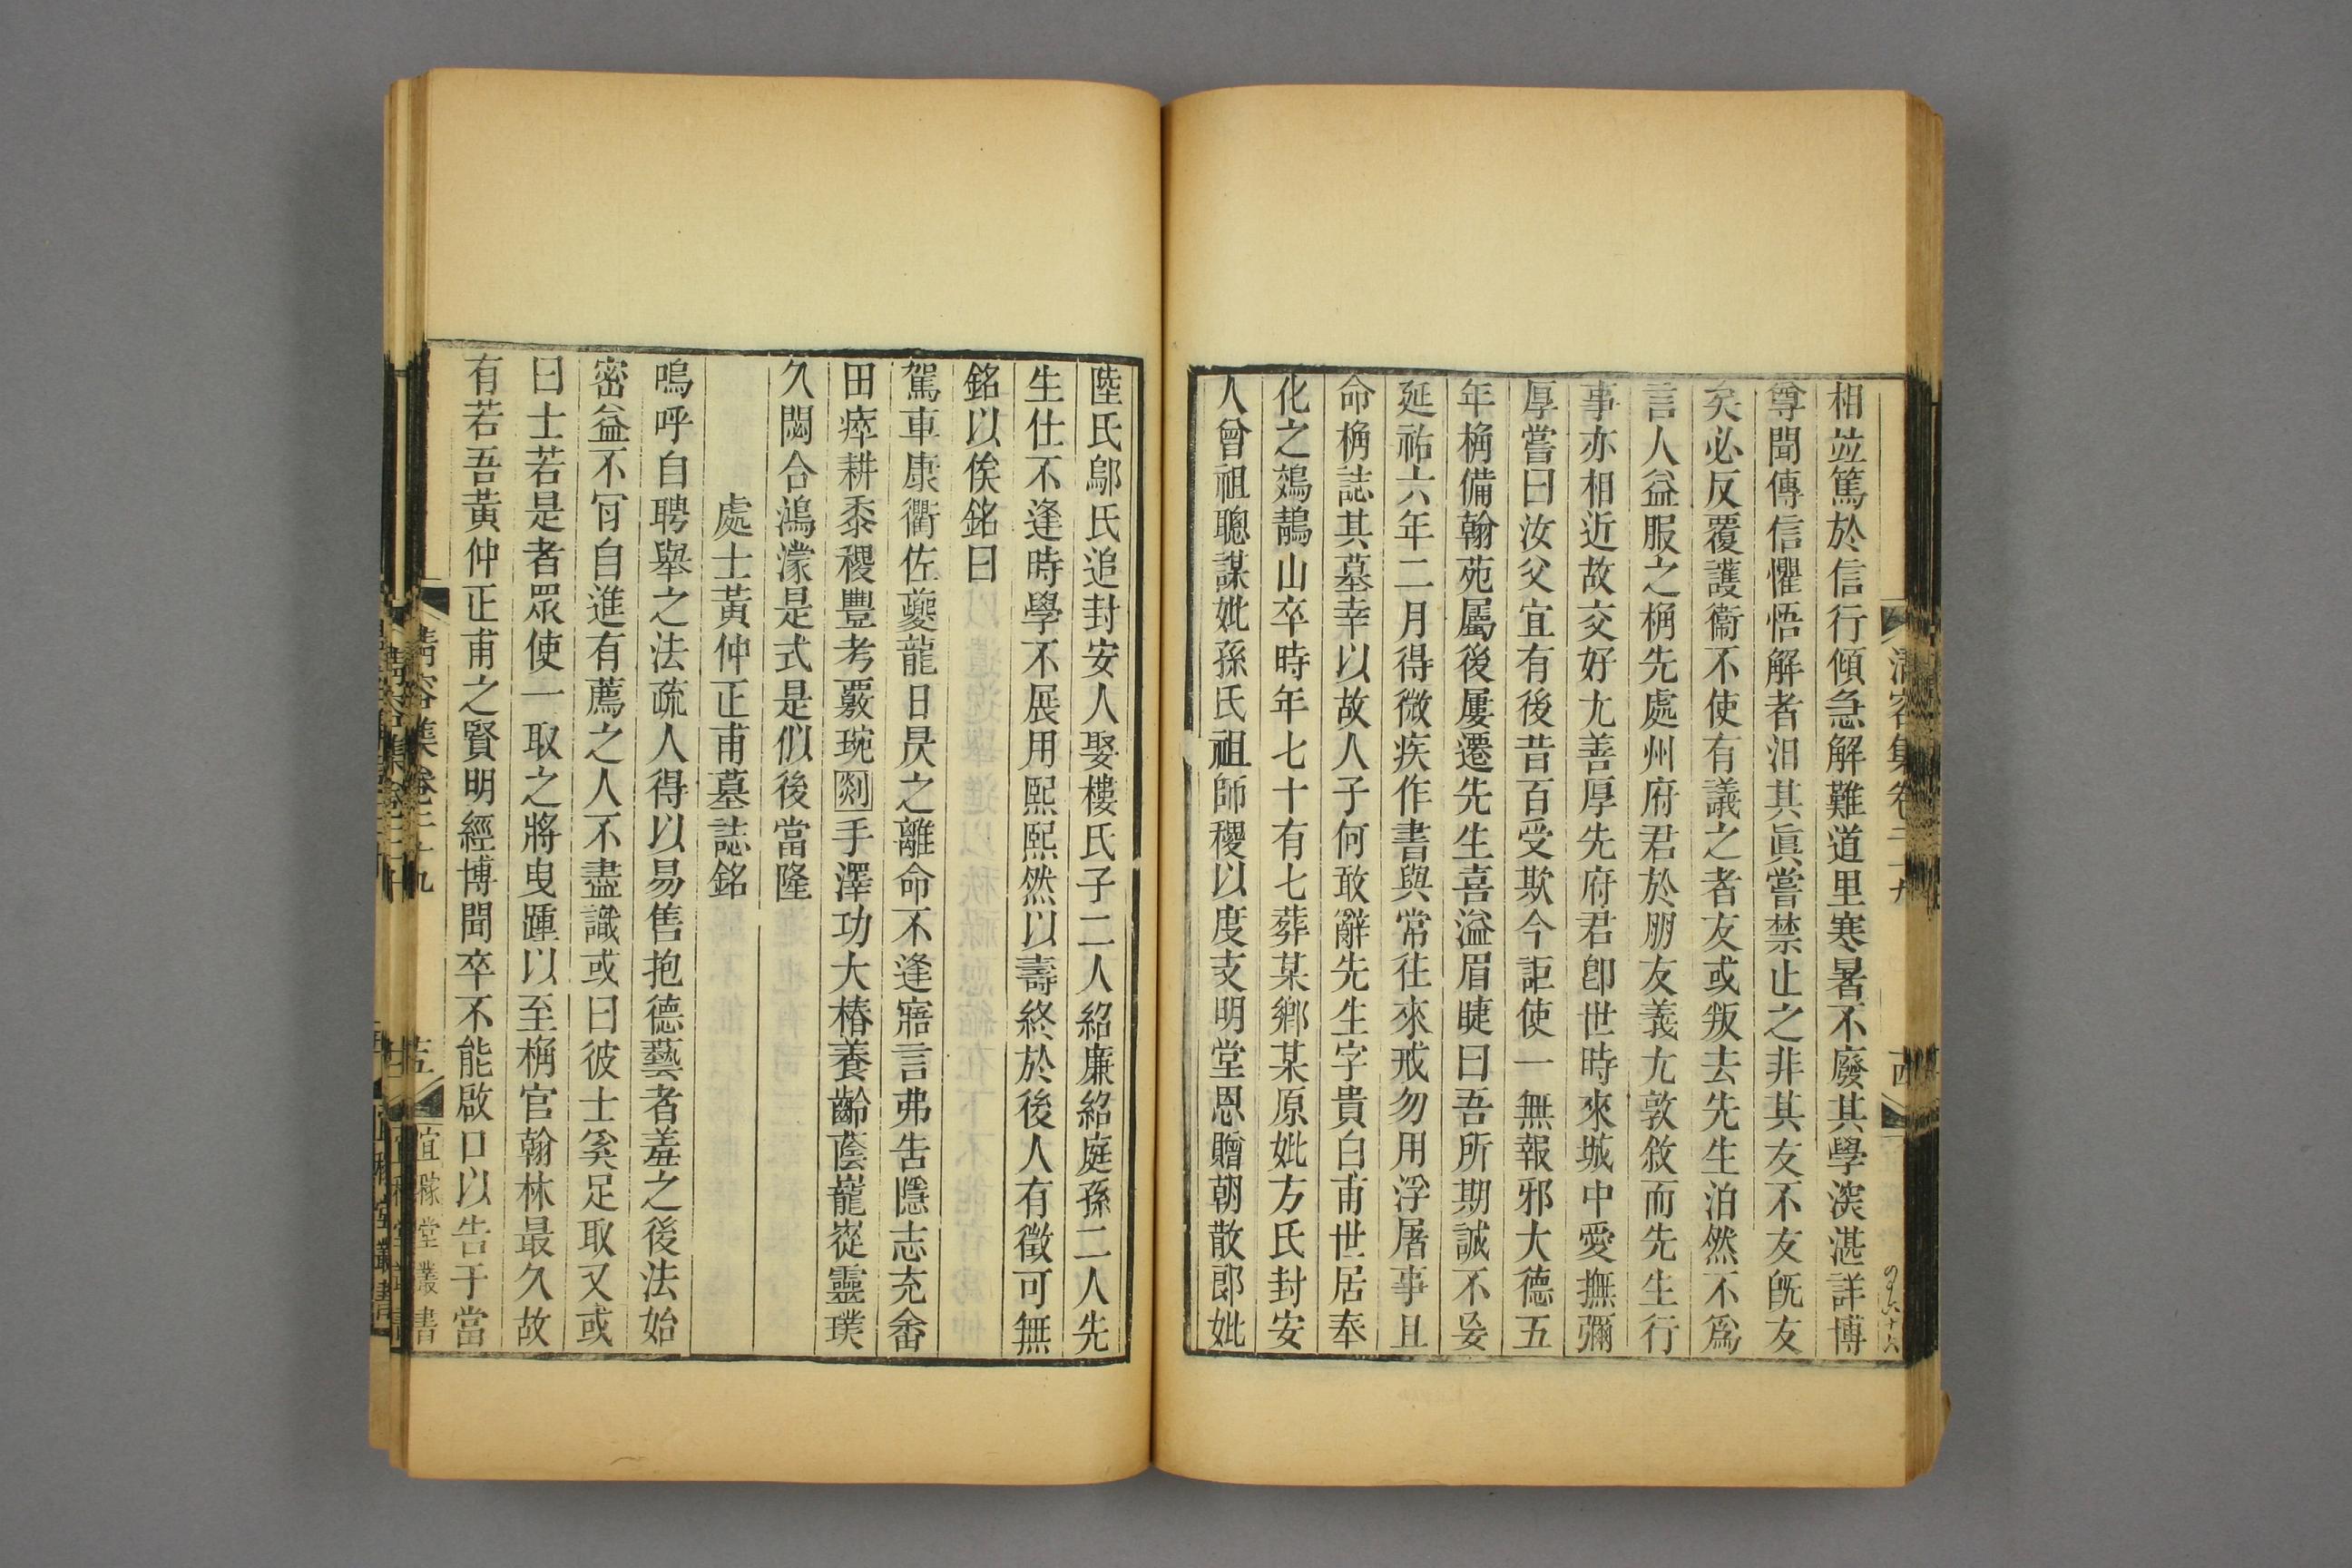 相竝篤於信行傾急解難道里寒暑不廢其學深湛詳博
尊聞傳信懼悟解者汨其眞嘗禁止之非其友不友旣友
矣必反覆護衞不使有議之者友或叛去先生泊然不爲
言人益服之桷先處州府君於朋友義尢敦敘而先生行
事亦相近故交好尢善厚先府君卽世時來城中愛撫彌
厚嘗曰汝父宜有後昔百受欺今詎使一無報邪大德五
年桷備翰苑屬後屢遷先生喜溢眉睫曰吾所期誠不妄
延祐六年二月得微疾作書與常往來戒勿用浮屠事且
命桷誌其墓幸以故人子何敢辭先生字貴白甫世居奉
化之鴳鵲山卒時年七十有七葬某鄕某原妣方氏封安
人曾祖聰謀妣孫氏祖師稷以度支明堂恩贈朝散郎妣
清容集卷二十九
陸氏鄔氏追封安人娶樓氏子二人紹廉紹庭孫二人先
生仕不逢時學不展用熙熙然以壽終於後人有徵可無
銘以俟銘曰
駕車康衢佐夔龍日昃之離命不逢寤言弗吿隱志充畬
田瘞耕黍稷豐考覈琬剡手澤功大椿養齡蔭巃嵸靈璞
久閟合鴻濛是式是似後當隆
處士黃仲正甫墓誌銘
嗚呼自聘舉之法疏人得以易售抱德藝者羞之後法始
密益不肎自進有薦之人不盡識或曰彼士奚足取又或
曰士若是者眾使一取之將曳踵以至桷官翰林最久故
有若吾黃仲正甫之賢明經博聞卒不能啟口以告于當
清容集卷二十九
五
宜稼堂叢書